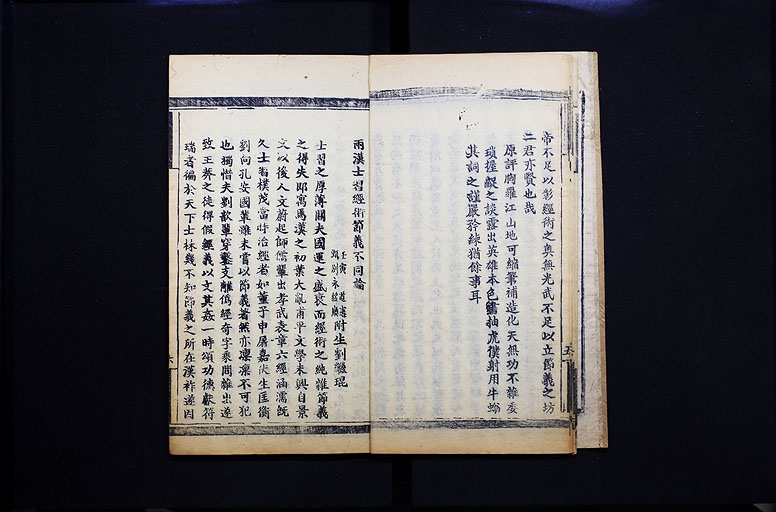 帝不足以彰經術之奧無光武不足以立節義之坊
二君亦賢也哉
原評胸羅江山地可縮筆補造化天無功不雜委
瑣握齪之談露出英雄本色鐫抽虎僕射用牛螉
其詞之謹嚴矜練猶餘事耳
五
兩漢士習經術節義不同論
壬寅
附生劉繼琨
士習之厚薄關夫國運之盛衰而經術之純雜節義
之得失即寓焉漢之初葉大亂甫平文學未興自景
文以後人文蔚起師儒輩出孝武表章六經涵濡既
久士習樸茂當時治經者如董子申屠嘉陜生匡衡
劉向孔安國輩雖未嘗以節義著然亦凜凜不可犯
也獨惜夫劉歆輩穿鑿支離僞經奇字乘間雜出遂
致王莽之徒得假經義以文其姦一時頌功德獻符
瑞者徧於天下士林幾不知節義之所在漢祚遂因
六